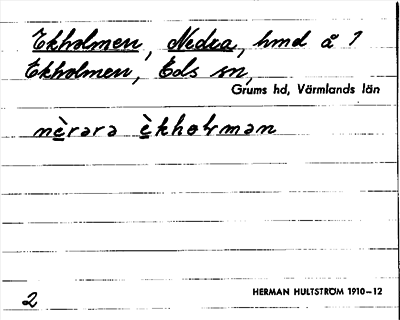 Ekholmen, Nedra, hmd å 1
Ekholmen, Eds sn,
Grums hd, Värmlands län
nèrərə èkhołmən
HERMAN HULTSTRÖM 1910–12
2